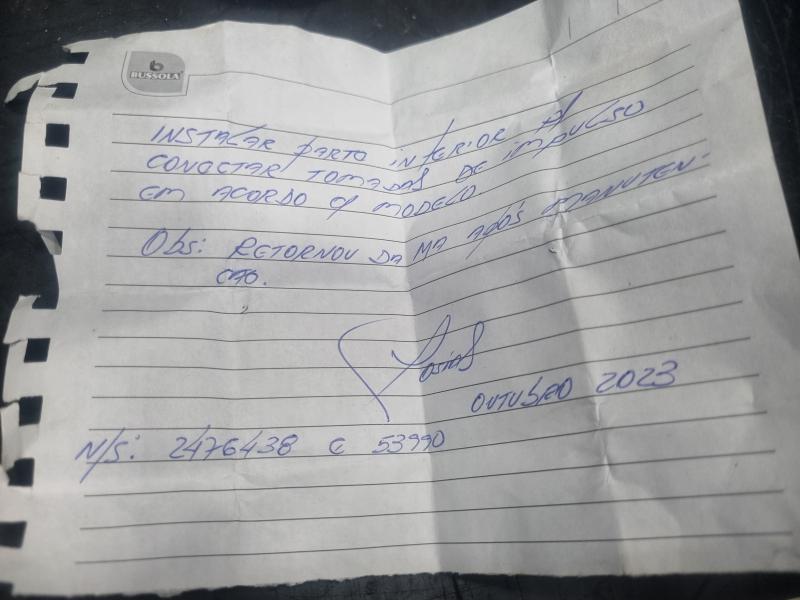 BUSSOLA
INSTALAR PARTO INFERIOR P/
CONOCTAR TOMADAS DE IMPULSO
EM ACORDO C/ MODELO
Obs: RETORNOU DA MA APÓS MANUTEN-
ÇÃO.
Josias
OUTUBRO 2023
N/S: 2476438 e 53990